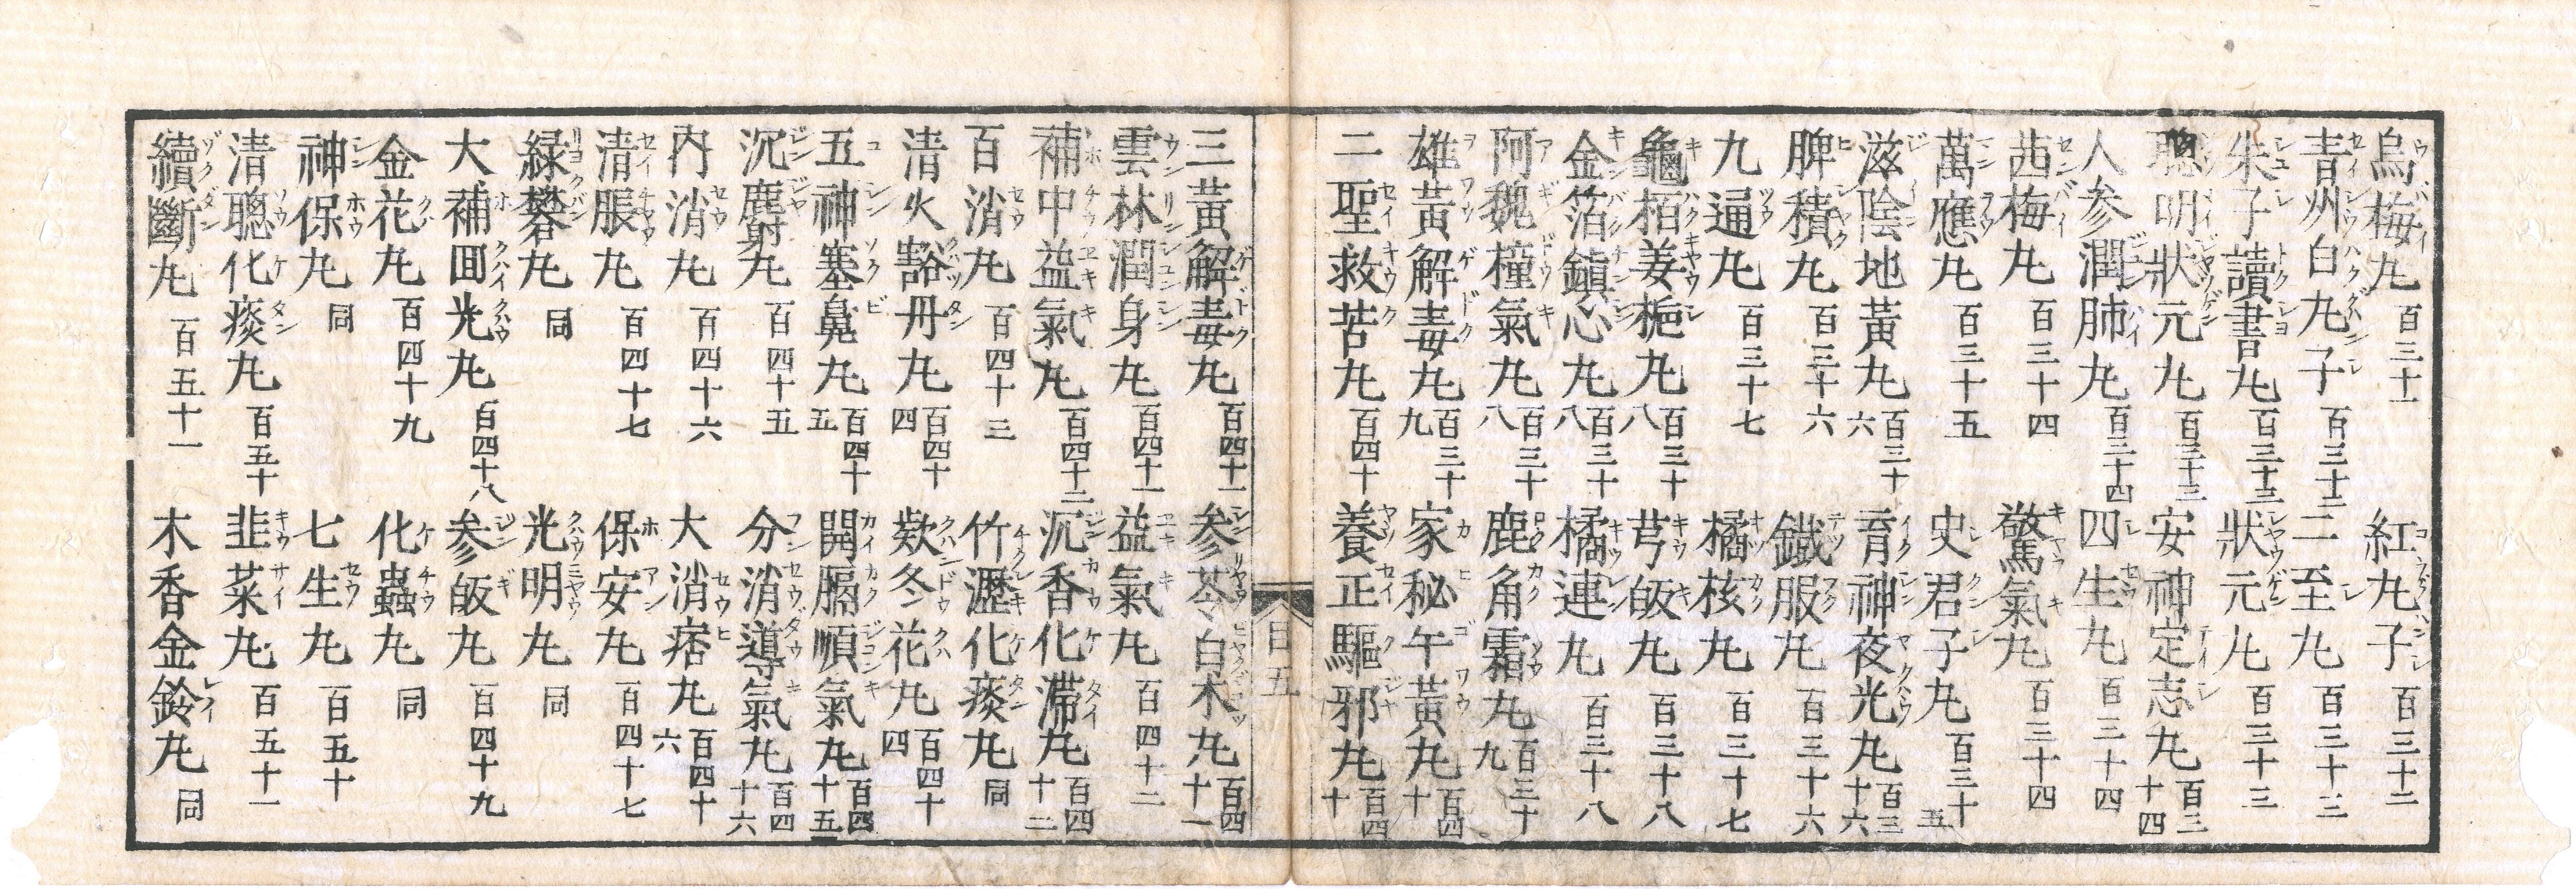 烏梅丸 百三十一 紅丸子 百三十二
青州白丸子 百三十二 二至丸 百三十三
朱子讀書丸 百三十三 狀元丸 百三十三
聰明狀元丸 百三十三 安神定志丸 百三十四
人参潤肺丸 百三十四 四生丸 百三十四
茜梅丸 百三十四 驚氣丸 百三十四
萬應丸 百三十五 史君子丸 百三十五
滋陰地黃丸 百三十六 育神夜光丸 百三十六
脾積丸 百三十六 鐵服丸 百三十六
九通丸 百三十七 橘核丸 百三十七
龜栢姜梔丸 百三十八 芎皈丸 百三十八
金箔鎮心丸 百三十八 橘連丸 百三十八
阿魏撞氣丸 百三十八 鹿角霜丸 百三十九
雄黃解毒丸 百三十九 家秘午黃丸 百四十
二聖救苦丸 百四十 養正驅邪丸 百四十
目五
三黃解毒丸 百四十一 参苓白朮丸 百四十一
雲林潤身丸 百四十一 益氣丸 百四十二
補中益氣丸 百四十二 沉香化滯丸 百四十二
百消丸 百四十三 竹瀝化痰丸 同
清火豁丹丸 百四十四 欵冬花丸 百四十四
五神塞鼻丸 百四十五 開膈順氣丸 百四十五
沉麝丸 百四十五 分消導氣丸 百四十六
內消丸 百四十六 大消痞丸 百四十六
清脹丸 百四十七 保安丸 百四十七
緑礬丸 同 光明丸 同
大補囬光丸 百四十八 参皈丸 百四十九
金花丸 百四十九 化蟲丸 同
神保丸 同 七生丸 百五十
清聰化痰丸 百五十 韭菜丸 百五十一
續斷丸 百五十一 木香金鈴丸 同